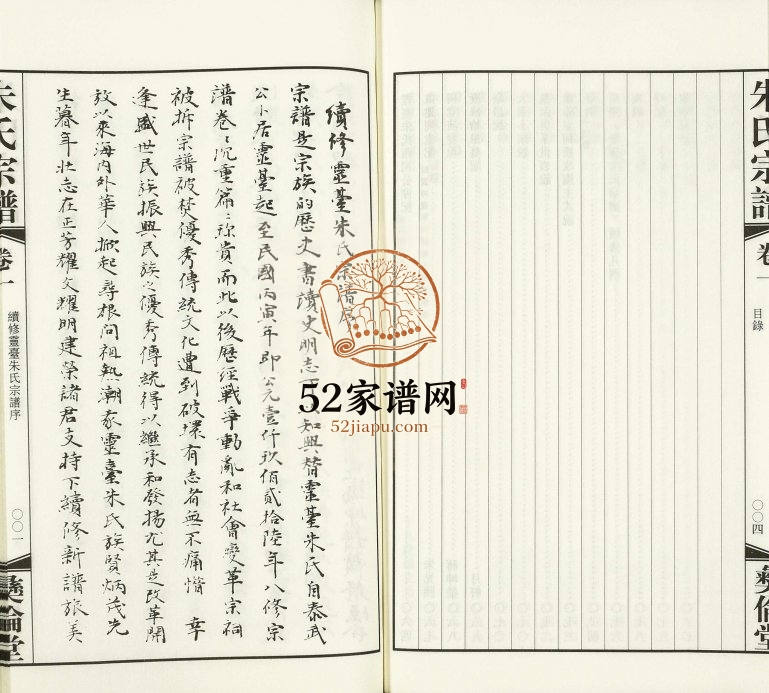 朱氏宗譜
卷一
目錄
〇〇四
彝倫堂
續修靈臺朱氏宗譜序
宗譜是宗族的歷史書讀史明志知興替靈臺朱氏自泰武
公卜居靈臺起至民國丙寅年即公元壹仟玖佰貳拾陸年八修宗
譜卷〻沉重篇〻珍貴而此以後歷經戰爭動亂和社會變革宗祠
被拆宗譜破焚優秀傳統文化遭到破壞有志者無不痛惜 幸
逢盛世民族振興民族之優秀傳統得以繼承和發揚尤其是改革開
放以來海内外華人掀起尋根問祖熱潮我靈臺朱氏族賢炳茂先
生暮年壯志在正芳耀文耀明建榮諸君支持下續修新譜旅美
朱氏宗譜
卷一
續修靈臺朱氏宗譜序
〇〇一
彝倫堂
52家谱网
52jiapu.com